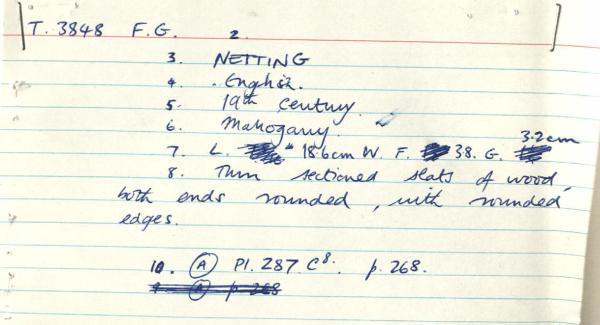 T. 3848 F.G. 2.
3. NETTING
4. English.
5. 19th Century.
6. Mahogany.
7. L. 18.6cm W. F. 38. G. 3.2cm
8. Thin sectioned slats of wood,
both ends rounded, with rounded
edges.
10. (A) Pl. 287 C8. p. 268.
9. (A) p. 268